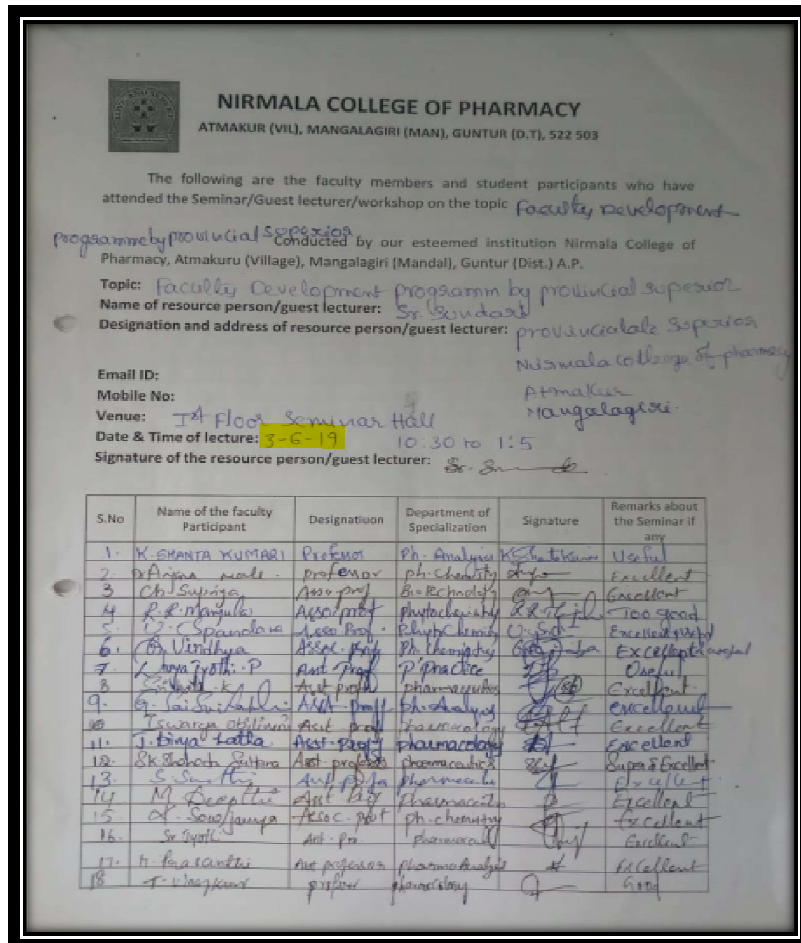 NIRMALA COLLEGE OF PHARMACY
ATMAKUR (VIL), MANGALAGIRI (MAN), GUNTUR (D.T), 522 503
The following are the faculty members and student participants who have
attended the Seminar/Guest lecturer/workshop on the topic Faculty Development
programme by provincial superior Conducted by our esteemed institution Nirmala College of
Pharmacy, Atmakuru (Village), Mangalagiri (Mandal), Guntur (Dist.) A.P.
Topic: Faculty Development programm by provincial superior
Name of resource person/guest lecturer: Sr. Sundari
Designation and address of resource person/guest lecturer: Superior
Nirmala college of pharmacy
Email ID:
Atmakur
Mobile No:
Mangalageri.
Venue: Ist Floor Seminar Hall
Date & Time of lecture: 3-6-19 10:30 to 1:5
Signature of the resource person/guest lecturer:
S.No Name of the faculty Participant Designatiuon Department of Specialization Signature Remarks about the Seminar if any
1. K. SHANTA KUMARI Professor Ph. Analysis Useful
2. professor ph. chemistry Excellent
3 Ch. Supriya Asso prof Biotechnology Excellent
4 R.R. Manjula Asso prof phytochemistry Too good
5 Spandana Asso Prof. Phytochemistry Excellent
6. Vindhya Assoc. Prof Ph. chemistry Excellent
7. Jyothi. P Asst. Prof P. Practice Useful
8 Asst prof pharmaceutics Excellent
9. G. Sai Asst. prof ph. Analysis excellent
10 Iswarya Asst prof pharmacology Excellent
11. J. Divya Latha Asst. prof pharmacology Excellent
12. Sk Shaheda Sultana Asst. professor pharmaceutics Super & Excellent
13. S. Asst Excellent
14 M Deepthi Asst Excellent
15. Sowjanya Assoc. prof ph. chemistry Excellent
16. Sr. Jyothi Ast. Pro Excellent
17. Prasanthi Asst professor Excellent
18 T. professor pharmacology Good